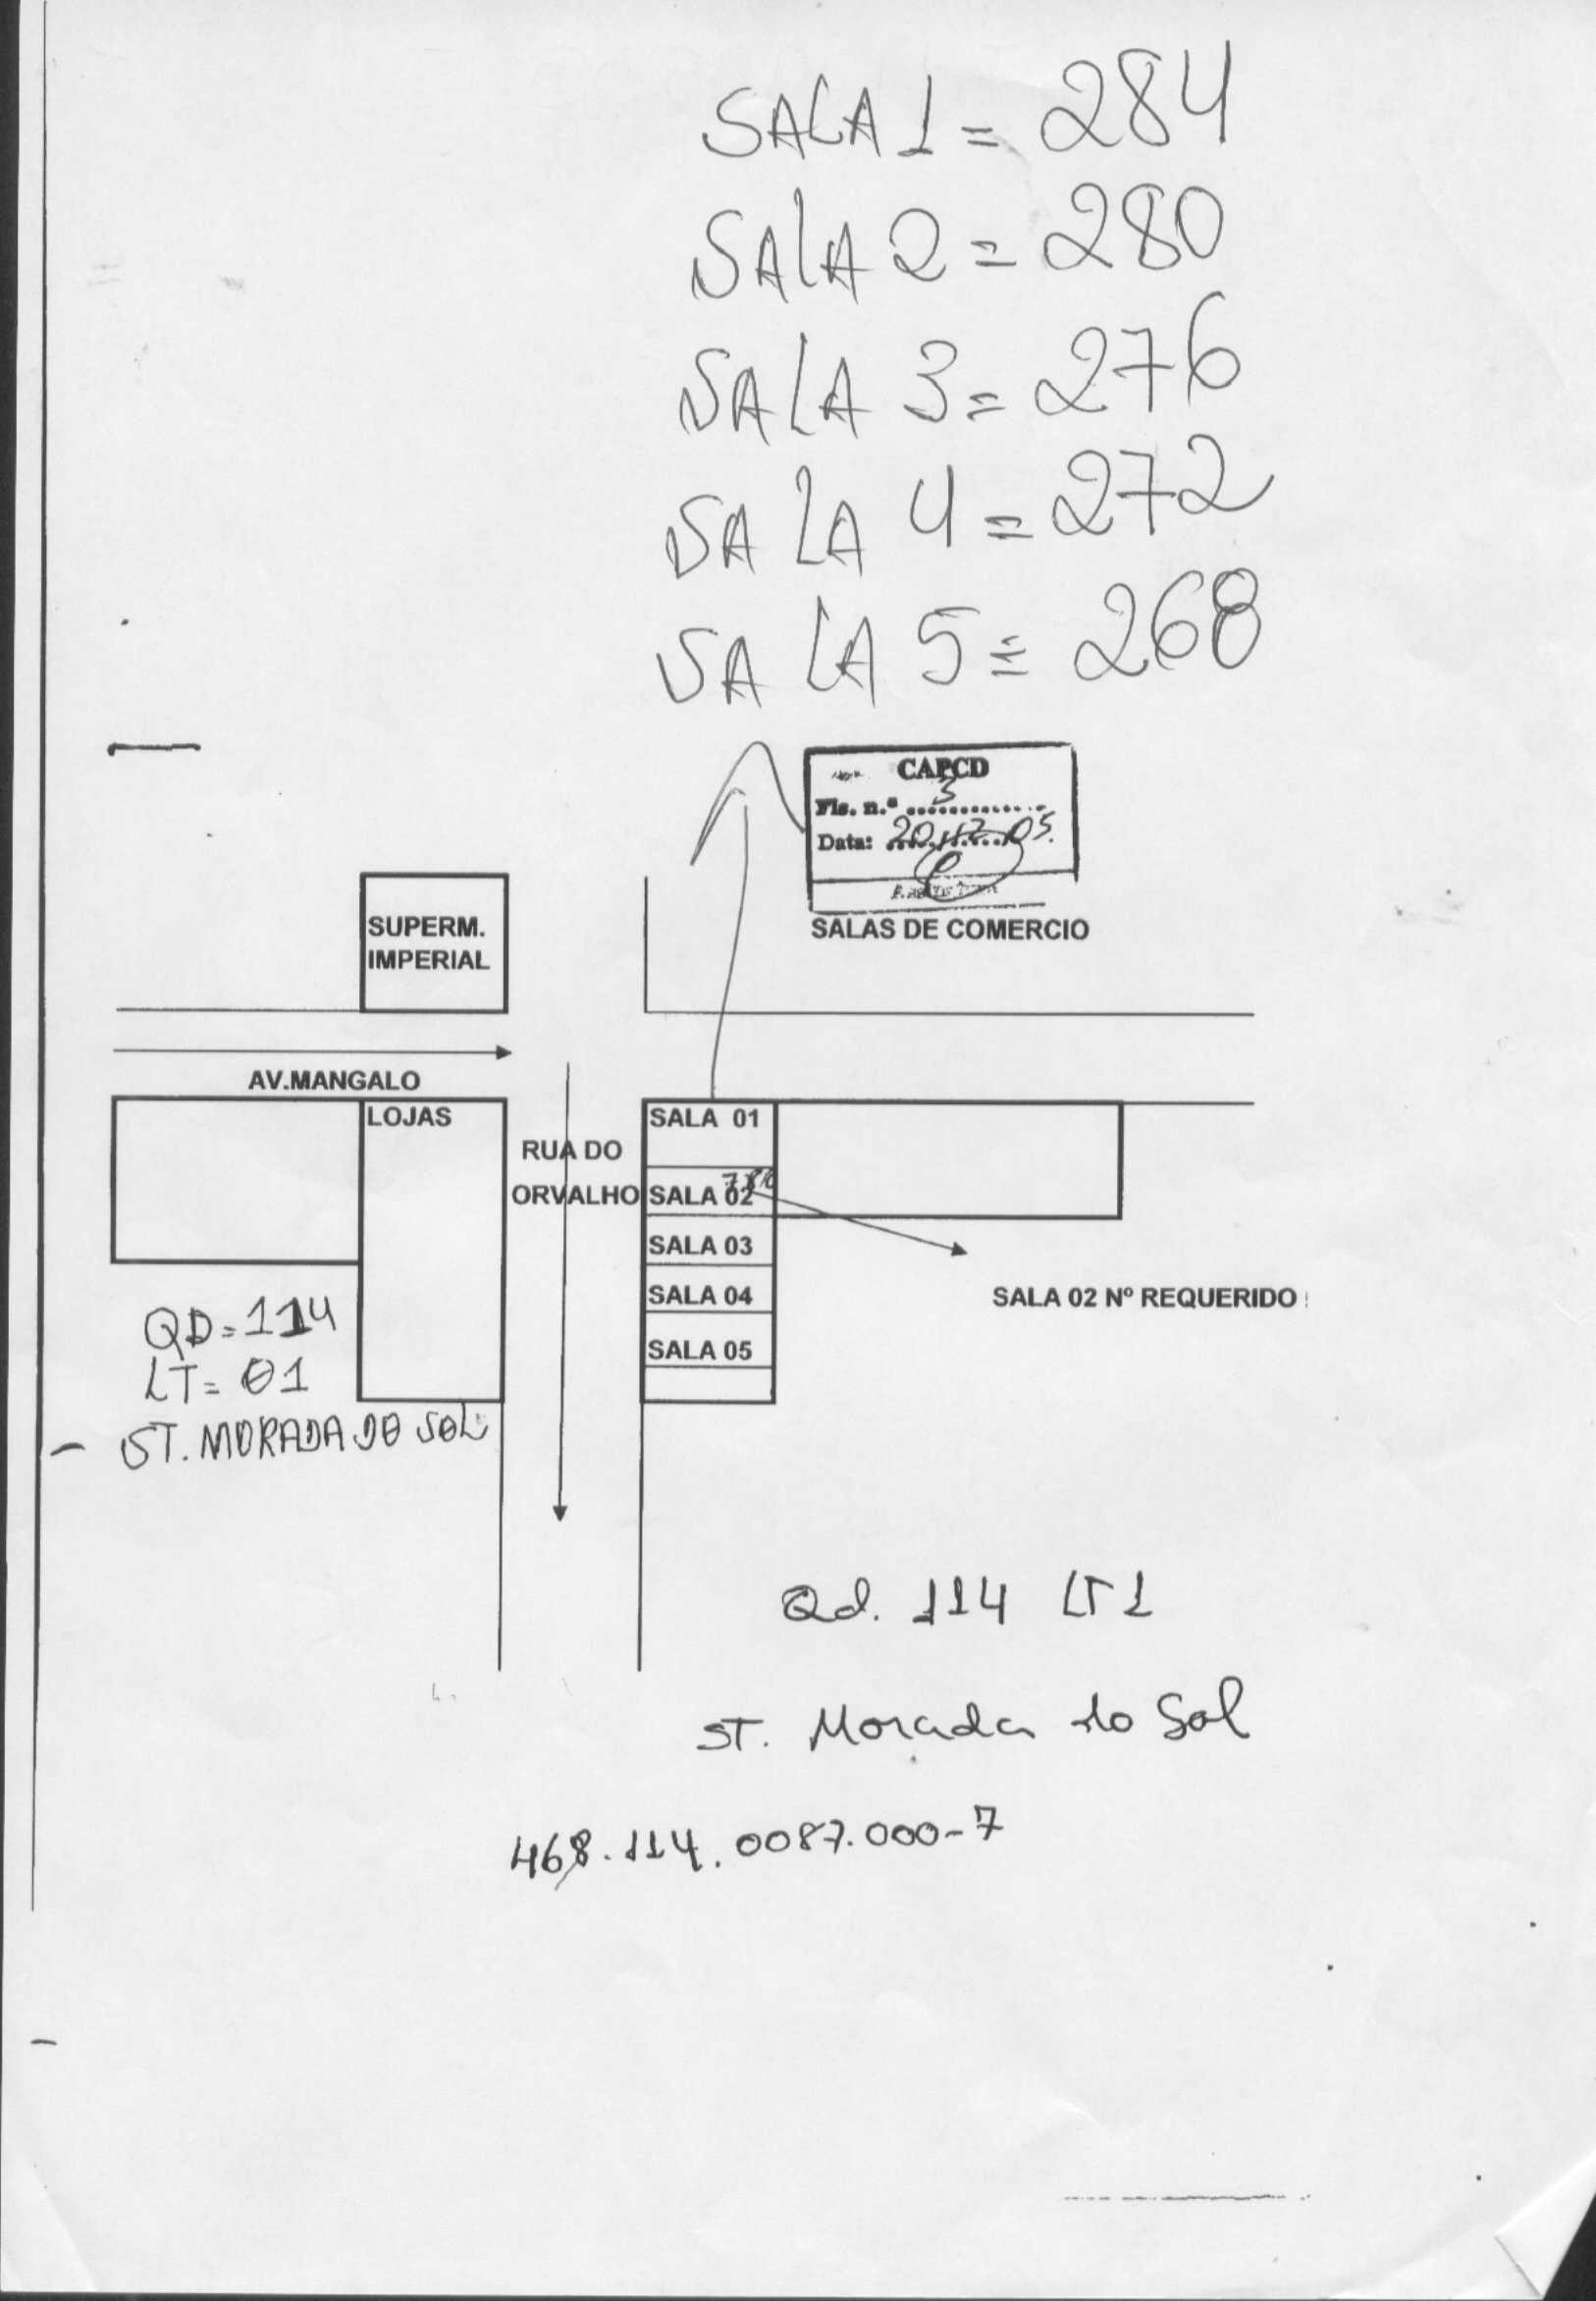 SALA 1 = 284
SALA 2 = 280
SALA 3 = 276
SALA 4 = 272
SALA 5 = 268
CAPCD
Fls. n.º 3
Data: 20.12.05.
SALAS DE COMERCIO
SUPERM.
IMPERIAL
AV.MANGALO
LOJAS
RUA DO
ORVALHO
SALA 01
SALA 02
SALA 03
SALA 04
SALA 05
SALA 02 Nº REQUERIDO
QD=114
LT= 01
ST. MORADA DO SOL
Qd. 114 LT 1
ST. Morada do Sol
468.114.0087.000-7